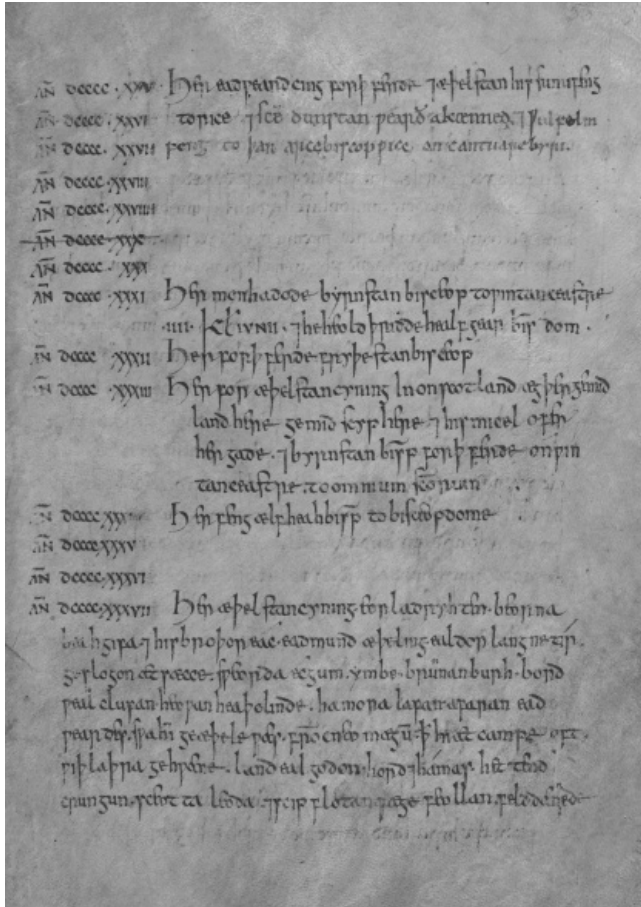 AN̄ dcccc · xxv · Her eadƿeard cing forþ ferde ⁊ æþelstan his sunu feng
AN̄ dcccc · xxvi to rice ⁊ sc̄e dunstan ƿearð akænned ⁊ ƿulfelm
AN̄ dcccc · xxvii feng to þan arcebiscoprice on cantuarebyri.
AN̄ dcccc · xxviii
AN̄ dcccc · xxviiii
AN̄ dcccc · xxx
AN̄ dcccc · xxx
AN̄ dcccc · xxxi Her mon hadode byrnstan biscop to ƿintanceastre
· iiii · kl̄ ivnii · ⁊ he heold þridde healf gear bisdom ·
AN̄ dcccc xxxii Her forþ ferde fryþestan biscop
AN̄ dcccc · xxxiii Her for æþelstan cyning in on scotland ægþer ge mid
land here ge mid scyp here ⁊ his micel ofer
hergade · ⁊ byrnstan bisp̄ forþ ferde on ƿin
tanceastre · to omnium sc̄orum
AN̄ dcccc xxx Her feng ælfheah bisp̄ to biscopdome
AN̄ dcccc xxxv
AN̄ dcccc · xxxvi
AN̄ dcccc · xxxvii Her æþelstan cyning · eorla dryhten · beorna
beahgifa ⁊ his broþor eac · eadmund æþeling · ealdor langne tir ·
geslogon æt sæcce · sƿeorda ecgum · ymbe · brunanburh · bord
ƿeal clufan · heoƿan heaþolinde · hamora lafan · afaran ead
ƿeardes · sƿa hī geæþele ƿæs · from cneo magū · þ hi æt campe oft ·
ƿiþ laþra gehƿæne · land ealgodon · hord ⁊ hamas · hettend
crungun · sceotta leoda · ⁊ scip flotan · fæge feollan ·